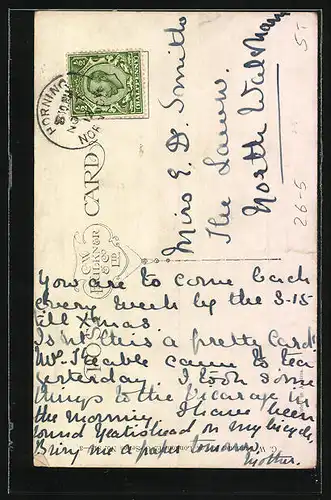 PORNING
NO
NOR
HALFPENNY
Miss E. D. Smith
The Lawn.
North Walsham
5-
26-5
POST CARD
C.W.
FAULKNER
& CO
LTD
You are to come back
every week by the 3-15
till Xmas.
Isn't this a pretty card
Mr. came to tea
yesterday. I took some
things to the Vicarage in
the morning. I have been
round Neatishead on my bicycle.
Bring me a paper tomorrow,
Mother.